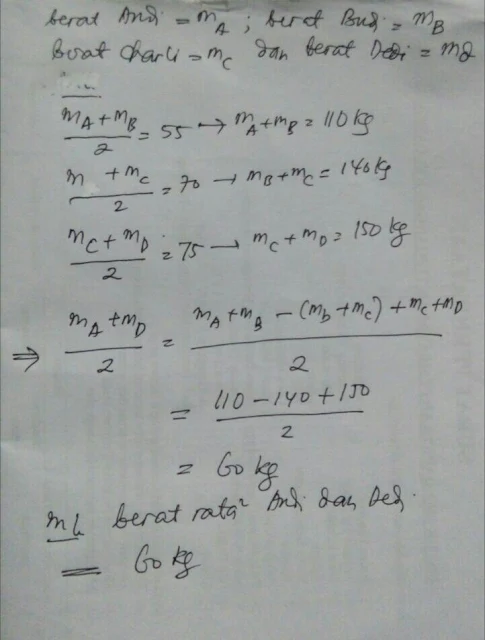 berat Andi = m_A ; berat Budi = m_B
berat Charli = m_C dan berat Dedi = md
(m_A + m_B)/2 = 55 → m_A + m_B = 110 kg
(m + m_C)/2 = 70 → m_B + m_C = 140 kg
(m_C + m_D)/2 = 75 → m_C + m_D = 150 kg
⇒ (m_A + m_D)/2 = (m_A + m_B − (m_b + m_C) + m_C + m_D)/2
= (110 − 140 + 150)/2
= 60 kg
berat rata² Andi dan Dedi.
= 60 kg